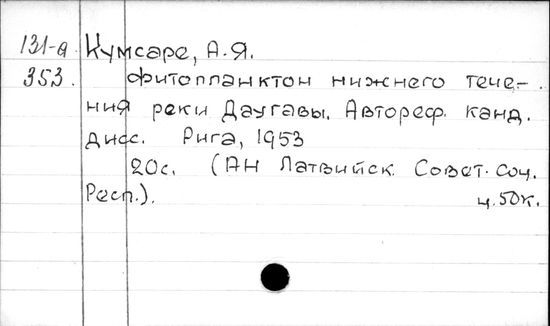 131-а Кумсаре, А.Я.
353. Фитопланктон нижнего тече-
ния реки Даугавы. Автореф. канд.
дисс. Рига, 1953
20с. (АН Латвийск. Совет. Соц.
Респ.). ц.50к.